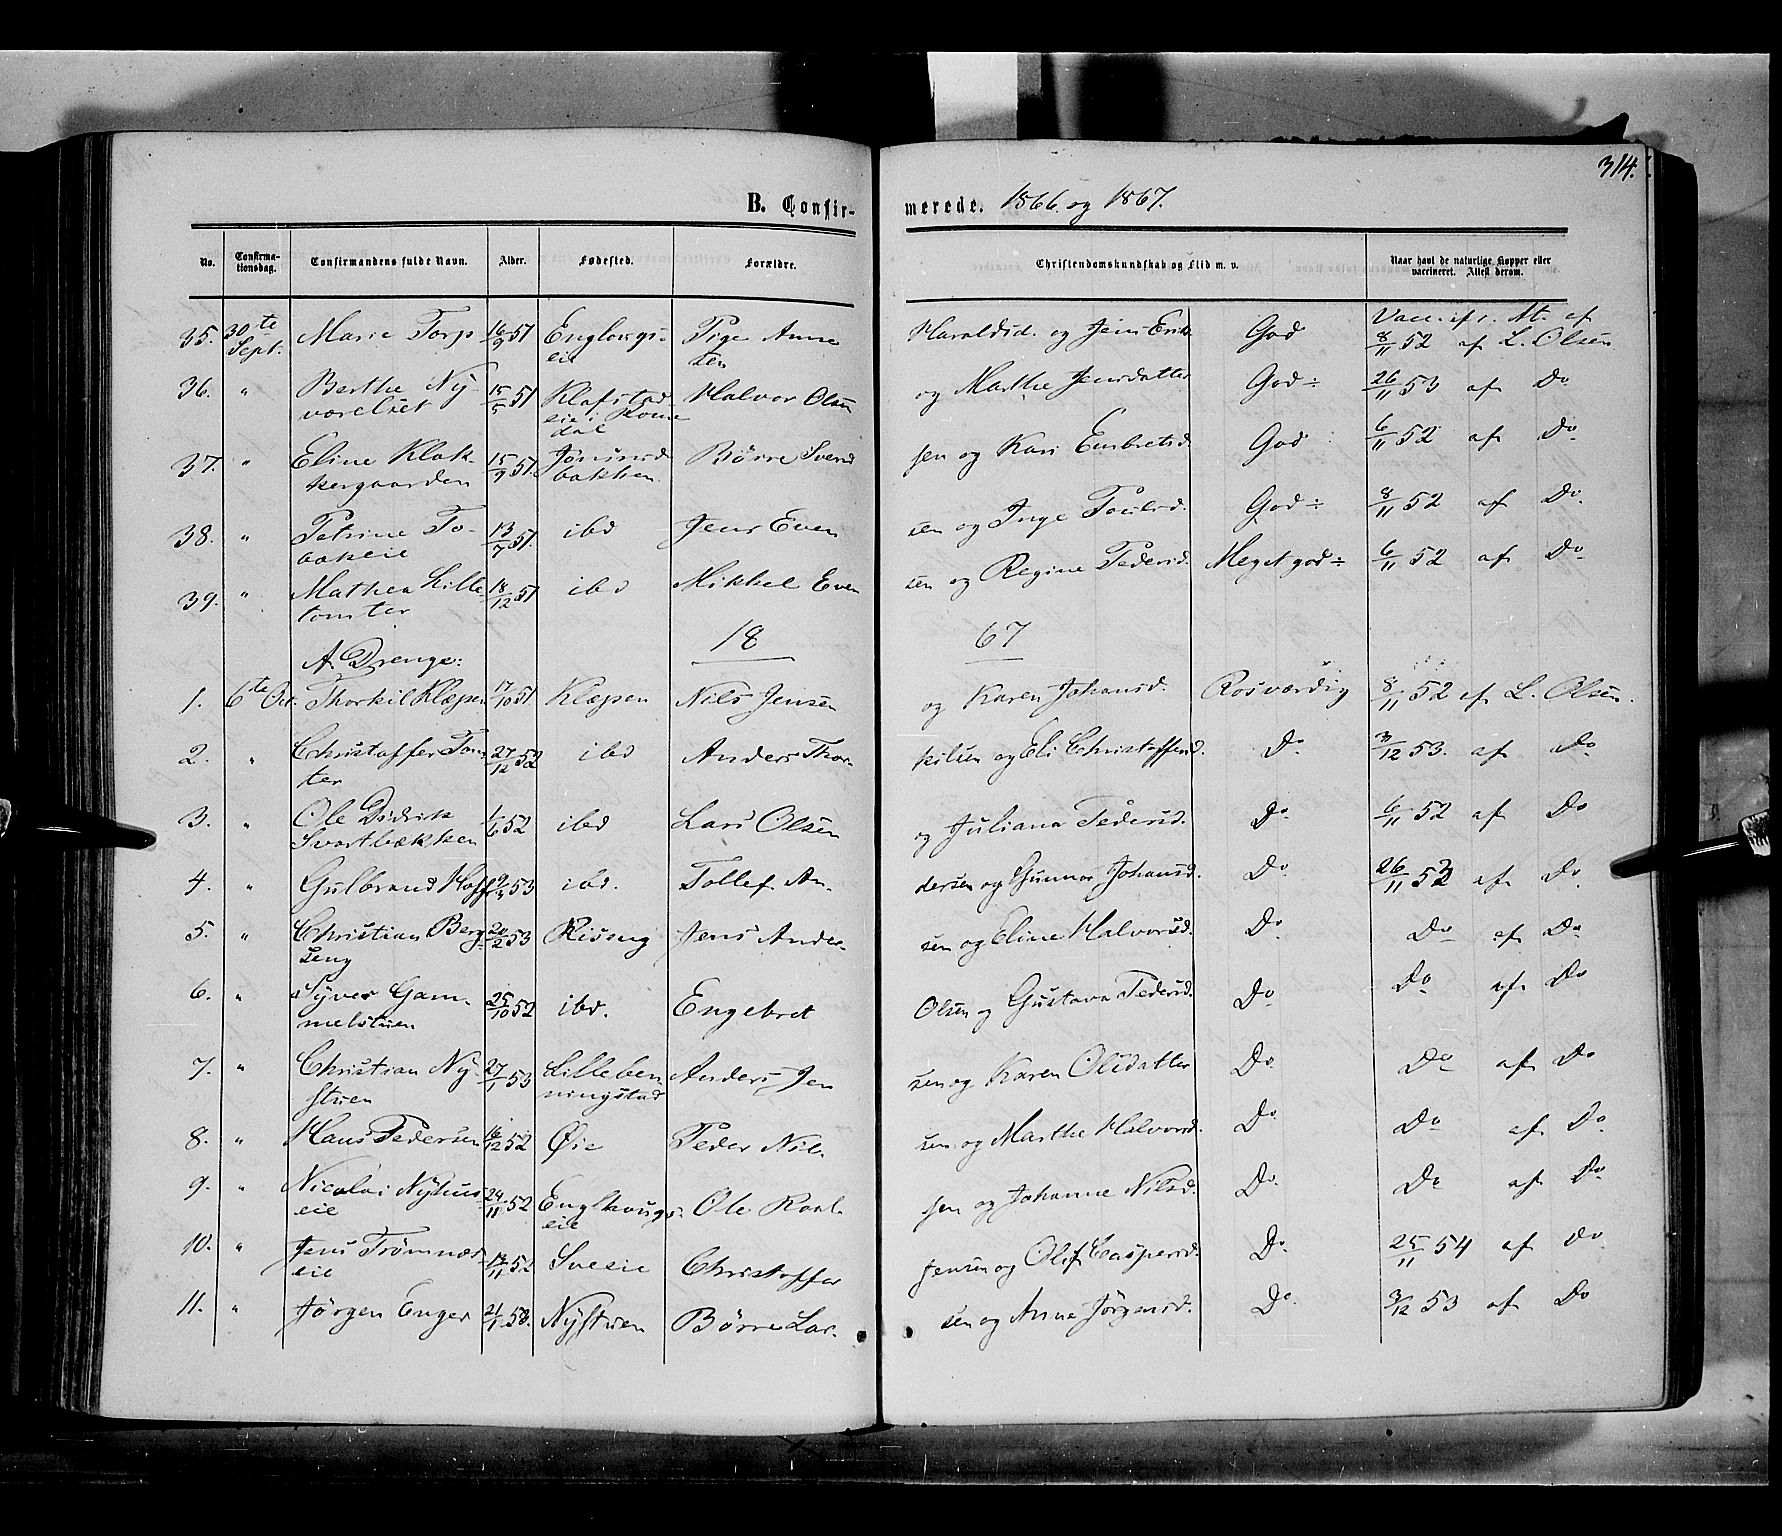 314.
B. Confirmerede. 1866 og 1867.
No. Confirmationsdag. Confirmandens fulde Navn. Alder. Fødested. Forældre. Christendomskundskab og Flid m. v. Naar havt de naturlige Kopper eller vaccineret. Attest derom.
35. 30te Sept. Marie Torp 16/9 51 Englougs- eie Pige Anne Haraldsd. og Jens Erik ten God Vacc. af 8/11 52 af L. Olsen
36. " Berthe Ny- vorelset 15/5 51 Klafstad eie i Rome dal Halvor Olsen og Marthe Jensdatter God ÷ 26/11 53 af Do
37. " Eline Klok- kergaarden 15/9 51. bakken Børre Svend sen og Kari Embretsd. God 6/11 52 af Do
38. " Petrine To- bakeie 13/7 51. ibd Jens Even sen og Inge Poulsd. God ÷ 8/11 52 af Do.
39. " Mathea Lille tomter 18/12 51 ibd Mikkel Even sen og Regine Pedersd. Meget god ÷ 6/11 52 af Do
18 67
A. Drenge:
1. 6te Oct. Thorkil Klæpen 17/10 51 Klæpen Nils Jensen og Karen Johansd. Rosværdig 8/11 52 af L. Olsen.
2. " Christoffer Tom ter 27/12 52 ibd Anders Thor- kilsen og Eli Christoffersd. Do 3/12 53. af Do
3. " Ole Didrik Svartbækken 1/6 52 ibd Lars Olsen og Juliana Pedersd. Do 6/11 52 af Do
4. " Gulbrand Hoff 53 ibd. Tollef An- dersen og Gunnor Johansd. Do 26/11 53 af Do
5. " Christian Berg seng 20/2 53 Riseng Jens Ander- sen og Eline Halvorsd. Do Do af Do
6. " Syver Gam- melstuen 25/10 52 ibd. Engebret Olsen og Gustava Pedersd. Do Do af Do
7. " Christian Ny- stuen 27/1 53 Lilleben ningstad Anders Jen sen og Karen Olsdatter Do Do af Do
8. " Hans Pedersen 16/12 52 Øie Peder Nil- sen og Marthe Halvorsd. Do Do af Do
9. " Nicolai Nyhus- eie 24/11 52 Englougs- eie Ole Karl- sen og Johanne Nilsd. Do Do af Do
10. " Jens Trømnæs eie 52 Sveeie Christoffer Jensen og Olif Caspersd. Do 25/11 54 af Do
11. " Jørgen Enger 21/1 53. Nystuen Børre Lar- sen og Anne Jørgensd. Do. 3/12 53 af Do